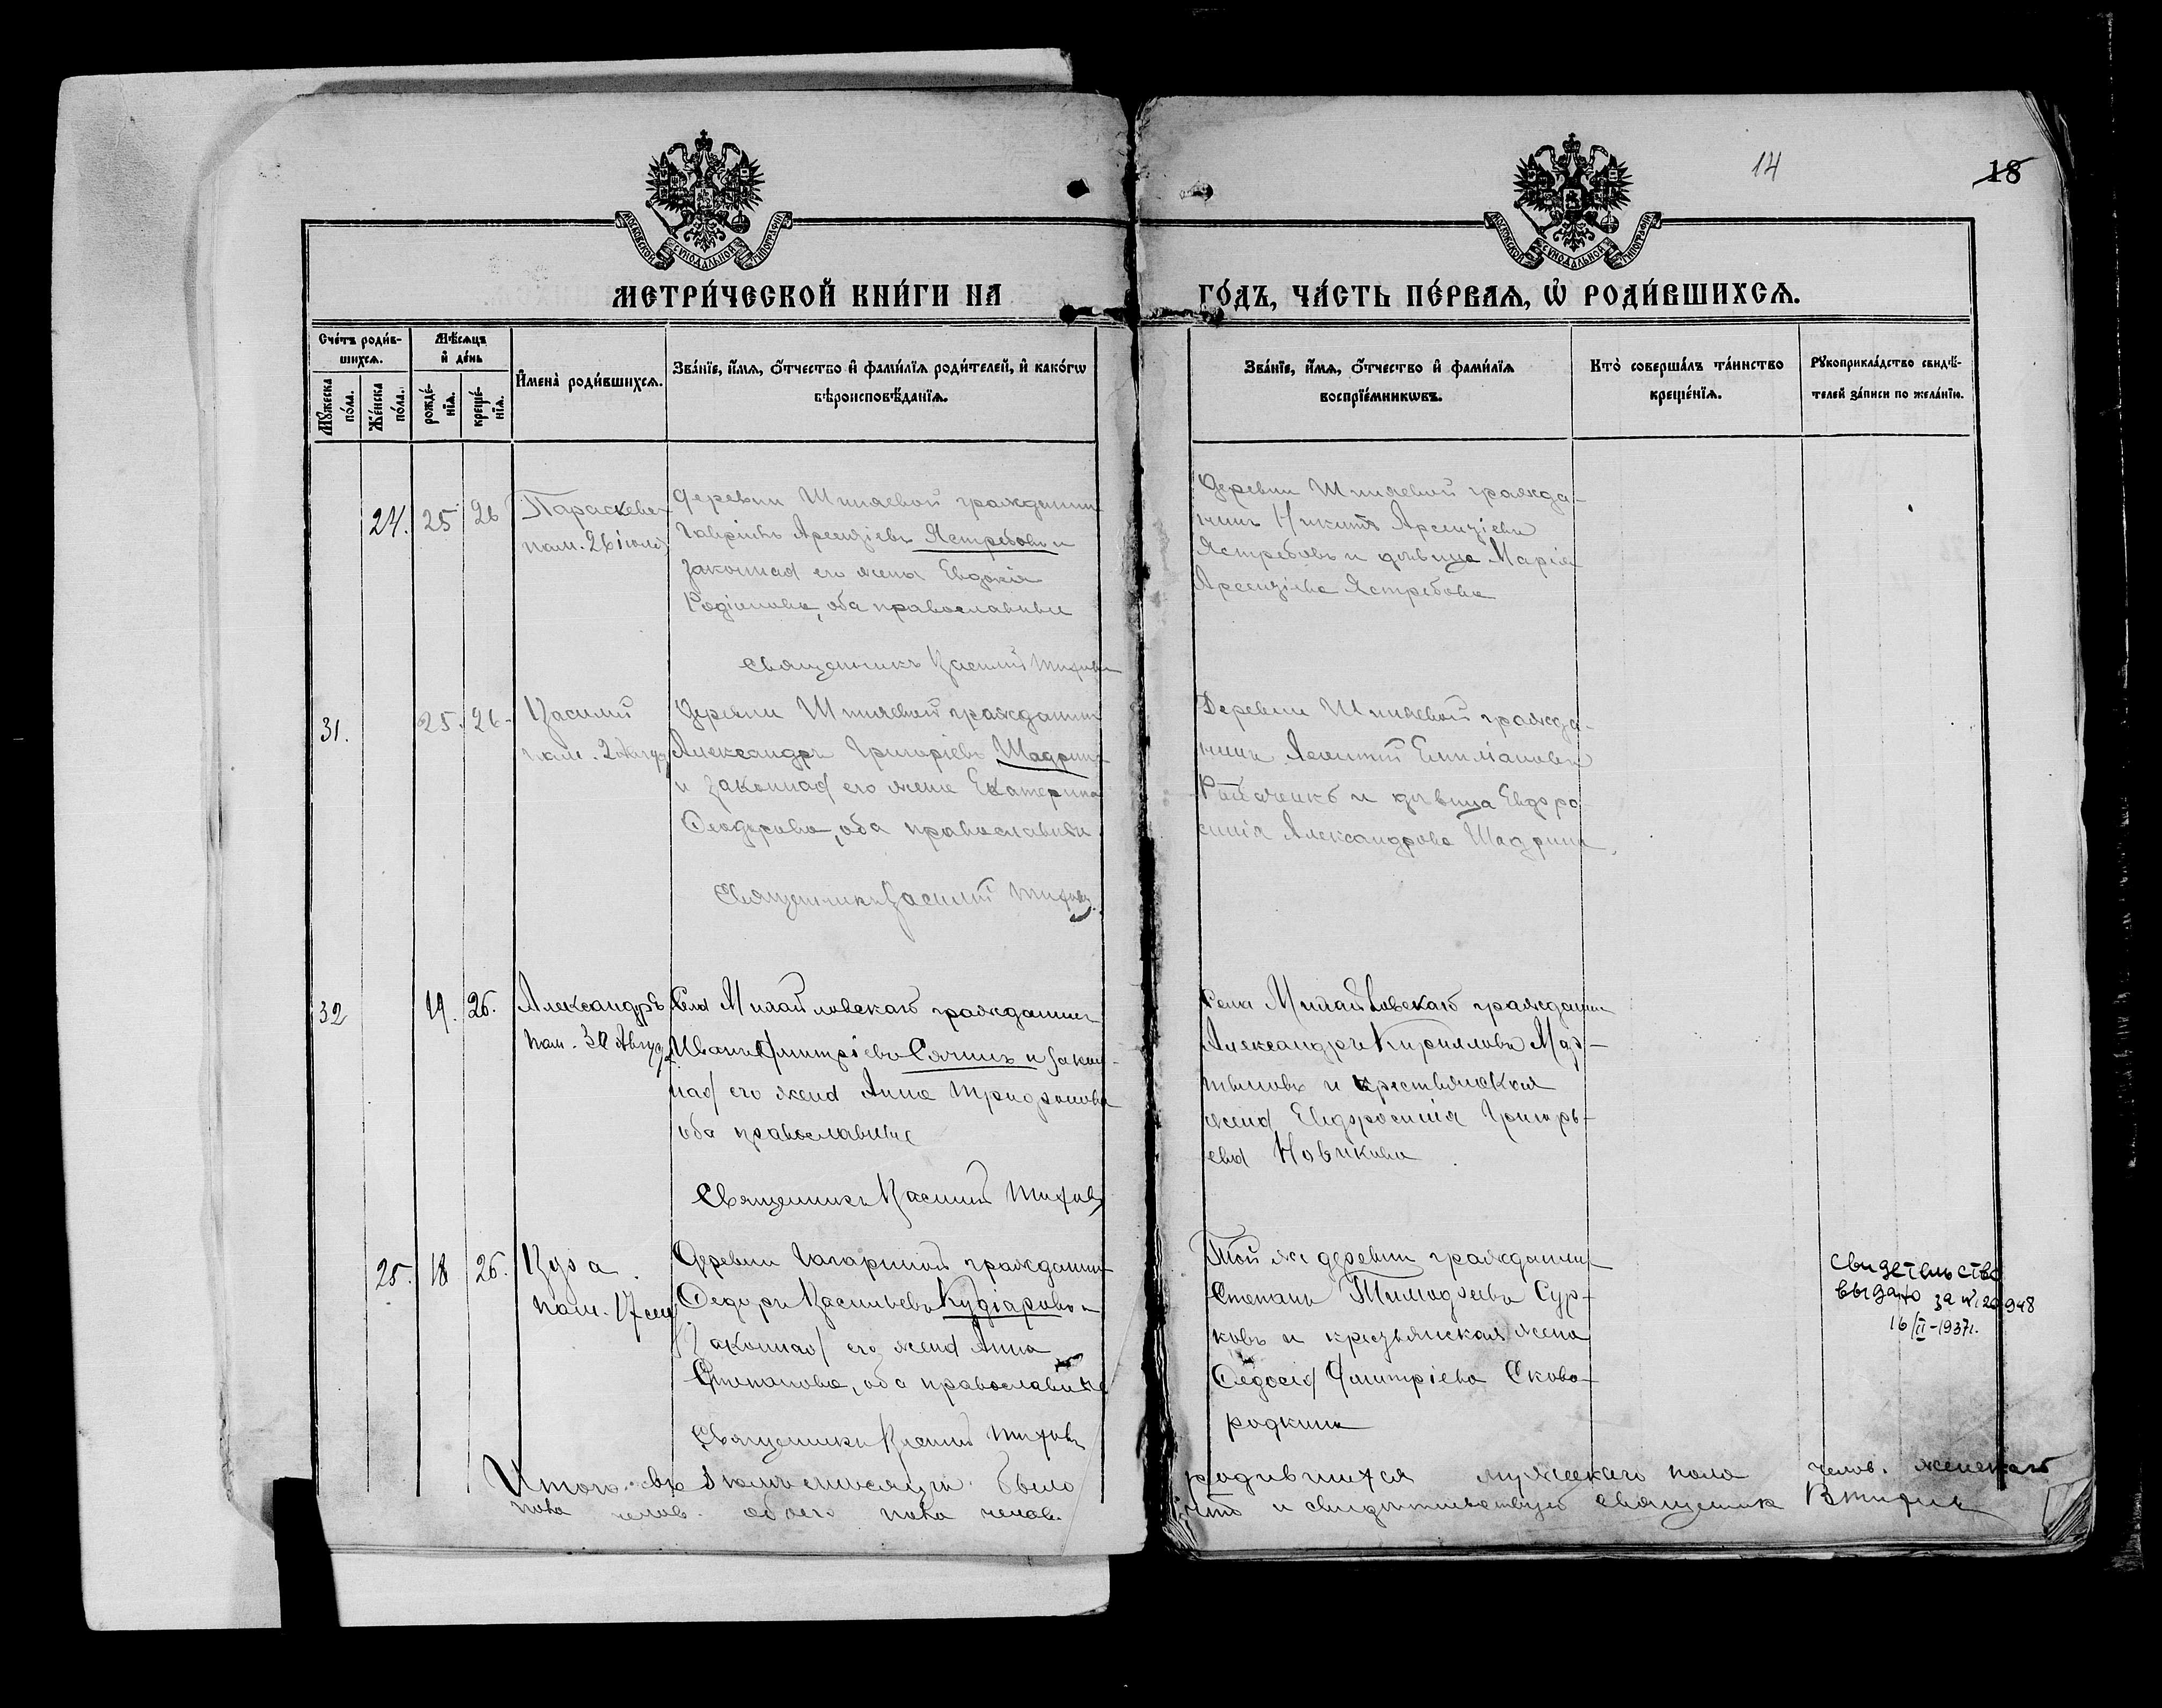 14
18
МОСКОВСКОЙ СѴНОДАЛЬНОЙ ТИПОГРАФІИ
МОСКОВСКОЙ СѴНОДАЛЬНОЙ ТИПОГРАФІИ
МЕТРИ́ЧЕСКОЙ КНИ́ГИ НА
ГО́ДЪ, ЧА́СТЬ ПЕ́РВАѦ, Ѡ҆ РОДИ́ВШИХСѦ.
Сче́тъ роди́в-
шихсѧ.
Мꙋ́жеска
по́ла.
Же́нска
по́ла.
Мѣ́сѧцъ
и҆ де́нь
рожде́-
нїѧ.
креще́-
нїѧ.
И҆мена̀ роди́вшихсѧ.
Зва́нїе, и҆́мѧ, ѻ҆́тчество и҆ фами́лїѧ роди́телей, и҆ како́гѡ
вѣроисповѣ́данїѧ.
Зва́нїе, и҆́мѧ, ѻ҆́тчество и҆ фами́лїѧ
воспрїе́мникѡвъ.
Кто̀ соверша́лъ та́инство
креще́нїѧ.
Рꙋкоприкла́дство свидѣ́-
телей за́писи по жела́нїю.
24. 25 26
Параскева
пам. 26 іюля
Деревни Шиняевой гражданин
Арсеніевъ Ястребовъ и
законная его жена Евдокія
Родіонова, оба православные
Священникъ Василий Тихов
Деревни Шиняевой гражда-
нинъ Никита Арсеніевъ
Ястребовъ и дѣвица Марія
Арсеніева Ястребова
31. 25. 26
Василий
пам.
Деревни Шиняевой гражданин
Александръ Григоріевъ Шадрин
и законная его жена Екатерина
Ѳеодорова, оба православные
Священникъ Василий Тихов
Деревни Шиняевой гражда-
нинъ Емиліановъ
и дѣвица Евфро-
синія Александрова Шадрина
32 19. 26.
Александръ
пам. 30 Августа
Села Михайловскаго гражданин
Иванъ Дмитріевъ и закон-
ная его жена Анна Трифонова
оба православные
Священникъ Василий Тихов
Села Михайловскаго гражданин
Александръ Кирилловъ Мар-
тыновъ и крестьянская
жена Евфросинія Григорь-
ева Новикова
25. 18 26.
пам. 17 сен
Деревни Гагариной гражданин
Ѳедоръ Васильевъ Кудіаровъ и
законная его жена Анна
Степанова, оба православные
Священникъ Василий Тихов
Той же деревни гражданин
Степанъ Тимофеевъ Сур-
ковъ и крестьянская жена
Ѳедосія Дмитріева Сково-
родкина
Свидетельство
выдано за № 20948
16/II-1937г.
Итого въ Іюлѣ мѣсяцѣ было
родившихся мужескаго пола челов. женскаго
пола челов. обоего пола челов.
что и свидѣтельствую священник В Тихов